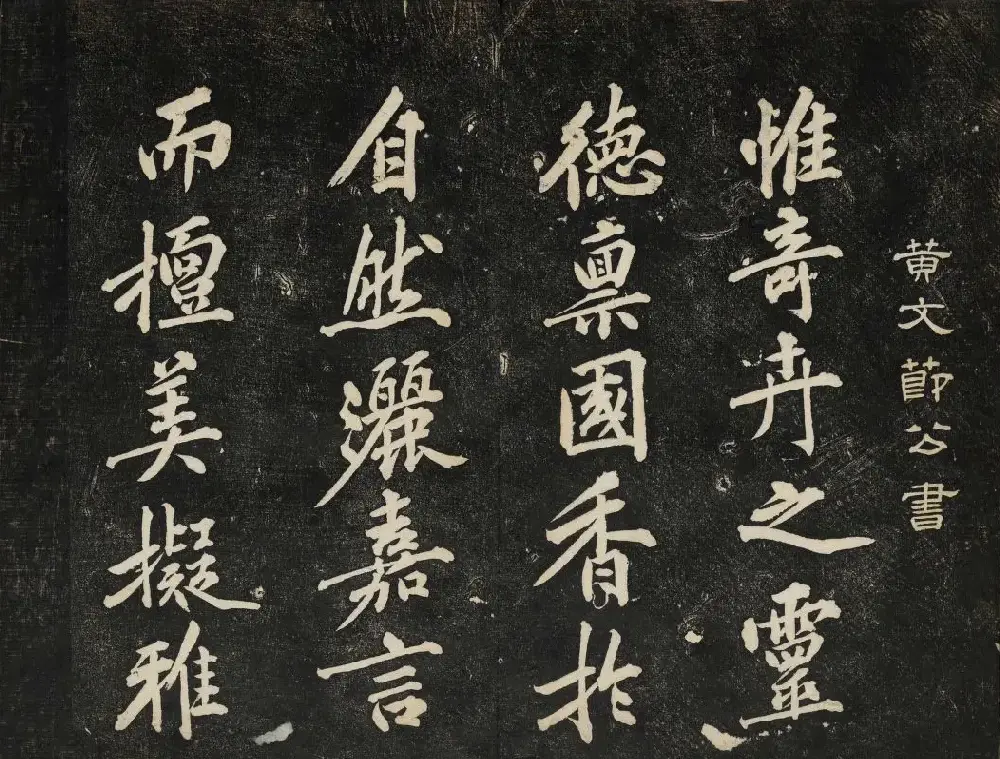 黄文節公書
惟奇卉之靈
德禀國香於
自然灑嘉言
而擅美擬雅